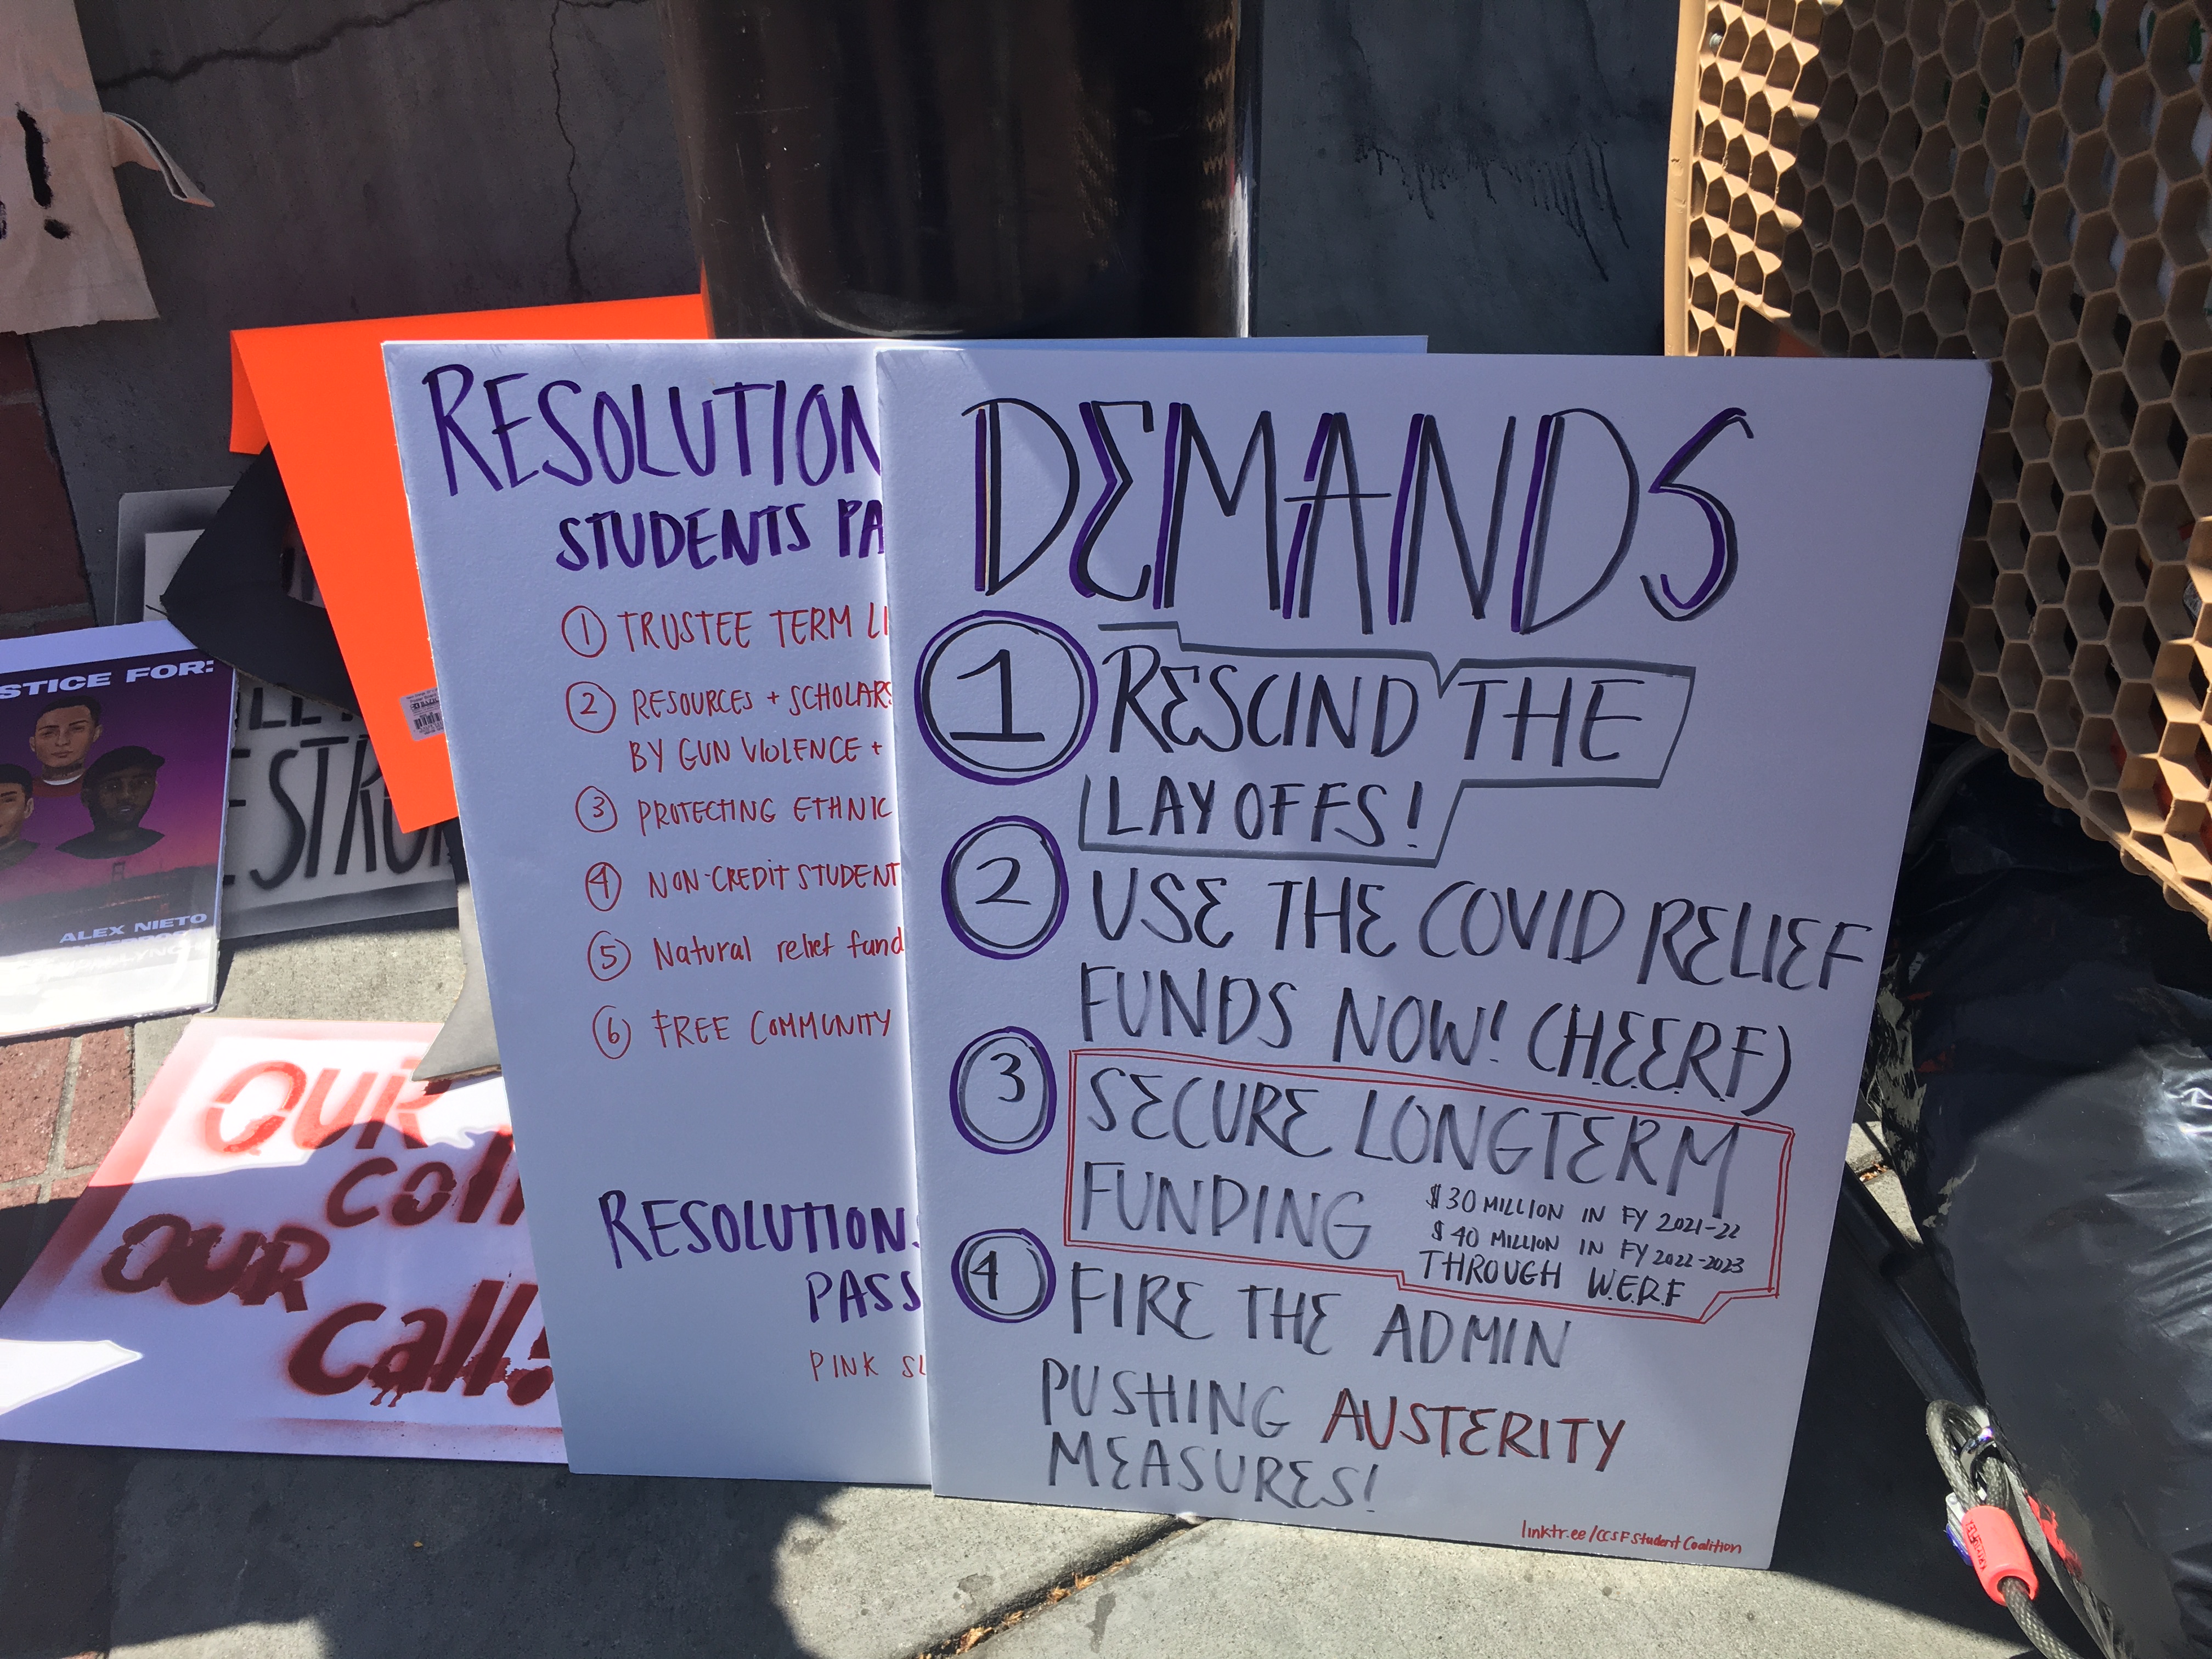 !
RESOLUTION
STUDENTS PA
① TRUSTEE TERM LI
② RESOURCES + SCHOLARS
BY GUN VIOLENCE +
③ PROTECTING ETHNIC
④ NON-CREDIT STUDENT
⑤ Natural relief fund
⑥ FREE COMMUNITY
RESOLUTIONS
PASS
PINK SL
DEMANDS
1 RESCIND THE
LAY OFFS!
2 USE THE COVID RELIEF
FUNDS NOW! (H.E.E.R.F)
3 SECURE LONGTERM
FUNDING
$30 MILLION IN FY 2021-22
$40 MILLION IN FY 2022-2023
THROUGH W.E.R.F
4 FIRE THE ADMIN
PUSHING AUSTERITY
MEASURES!
linktr.ee/CCSFStudentCoalition
STICE FOR:
ALEX NIETO
E STRO
OUR
coll
OUR
call!